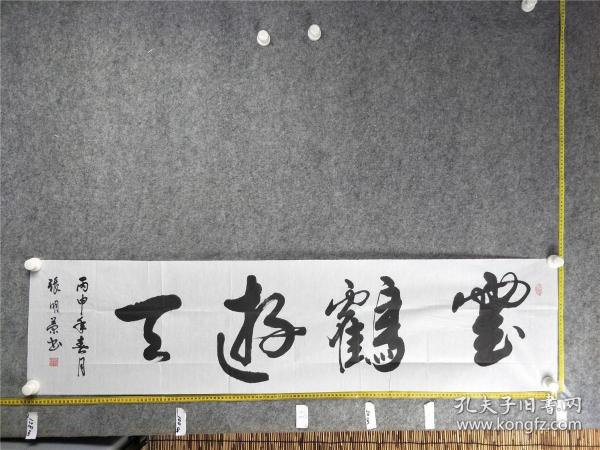 鶴遊天
丙申年春月
張明景书
孔夫子旧书网
www.kongfz.com